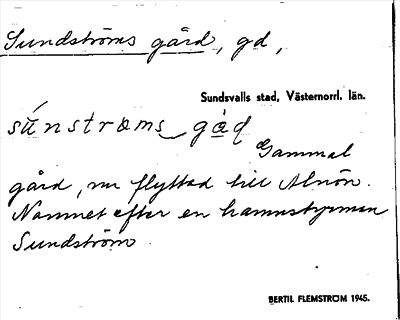 Sundströms gård, gd,
Sundsvalls stad, Västernorrl. län.
súnstrœms gàḍ
Gammal
gård, nu flyttad till Alnön.
Namnet efter en hamnstyrman
Sundström.
BERTIL FLEMSTRÖM 1945.